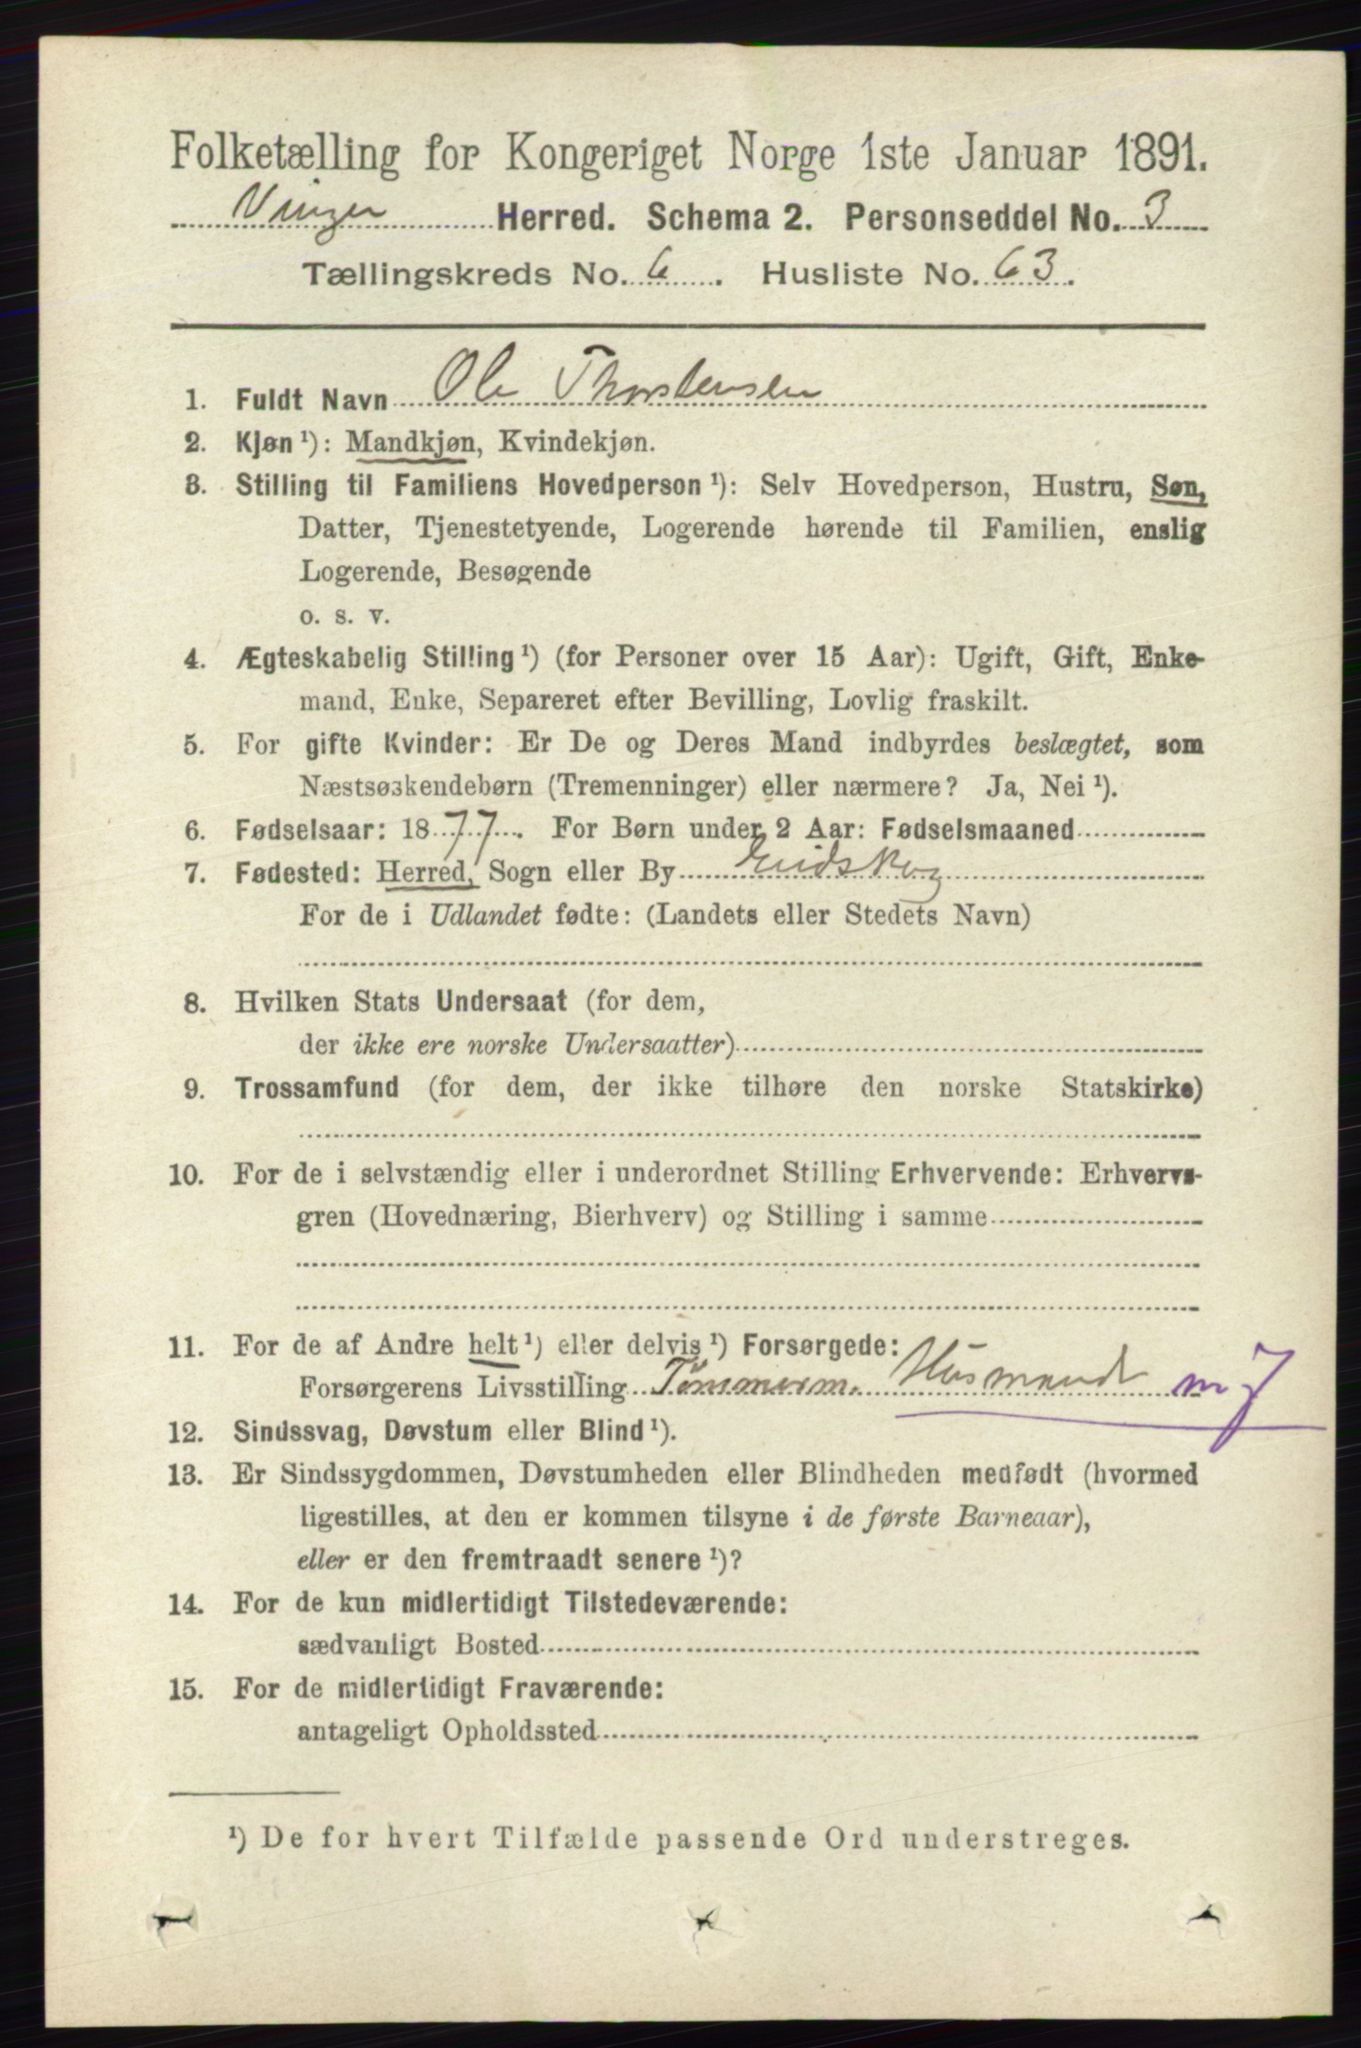 Folketælling for Kongeriget Norge 1ste Januar 1891.
Vinger Herred. Schema 2. Personseddel No. 3
Tællingskreds No. 6. Husliste No. 63.
1. Fuldt Navn Ole Thorstensen
2. Kjøn ¹): Mandkjøn, Kvindekjøn.
3. Stilling til Familiens Hovedperson ¹): Selv Hovedperson, Hustru, Søn,
Datter, Tjenestetyende, Logerende hørende til Familien, enslig
Logerende, Besøgende
o. s. v.
4. Ægteskabelig Stilling ¹) (for Personer over 15 Aar): Ugift, Gift, Enke-
mand, Enke, Separeret efter Bevilling, Lovlig fraskilt.
5. For gifte Kvinder: Er De og Deres Mand indbyrdes beslægtet, som
Næstsøskendebørn (Tremenninger) eller nærmere? Ja, Nei ¹).
6. Fødselsaar: 1877. For Børn under 2 Aar: Fødselsmaaned
7. Fødested: Herred, Sogn eller By Eidskog
For de i Udlandet fødte: (Landets eller Stedets Navn)
8. Hvilken Stats Undersaat (for dem,
der ikke ere norske Undersaatter)
9. Trossamfund (for dem, der ikke tilhøre den norske Statskirke)
10. For de i selvstændig eller i underordnet Stilling Erhvervende: Erhvervs-
gren (Hovednæring, Bierhverv) og Stilling i samme
11. For de af Andre helt ¹) eller delvis ¹) Forsørgede:
Forsørgerens Livsstilling Tömmerm. Husmand m J
12. Sindssvag, Døvstum eller Blind ¹).
13. Er Sindssygdommen, Døvstumheden eller Blindheden medfødt (hvormed
ligestilles, at den er kommen tilsyne i de første Barneaar),
eller er den fremtraadt senere ¹)?
14. For de kun midlertidigt Tilstedeværende:
sædvanligt Bosted
15. For de midlertidigt Fraværende:
antageligt Opholdssted
¹) De for hvert Tilfælde passende Ord understreges.